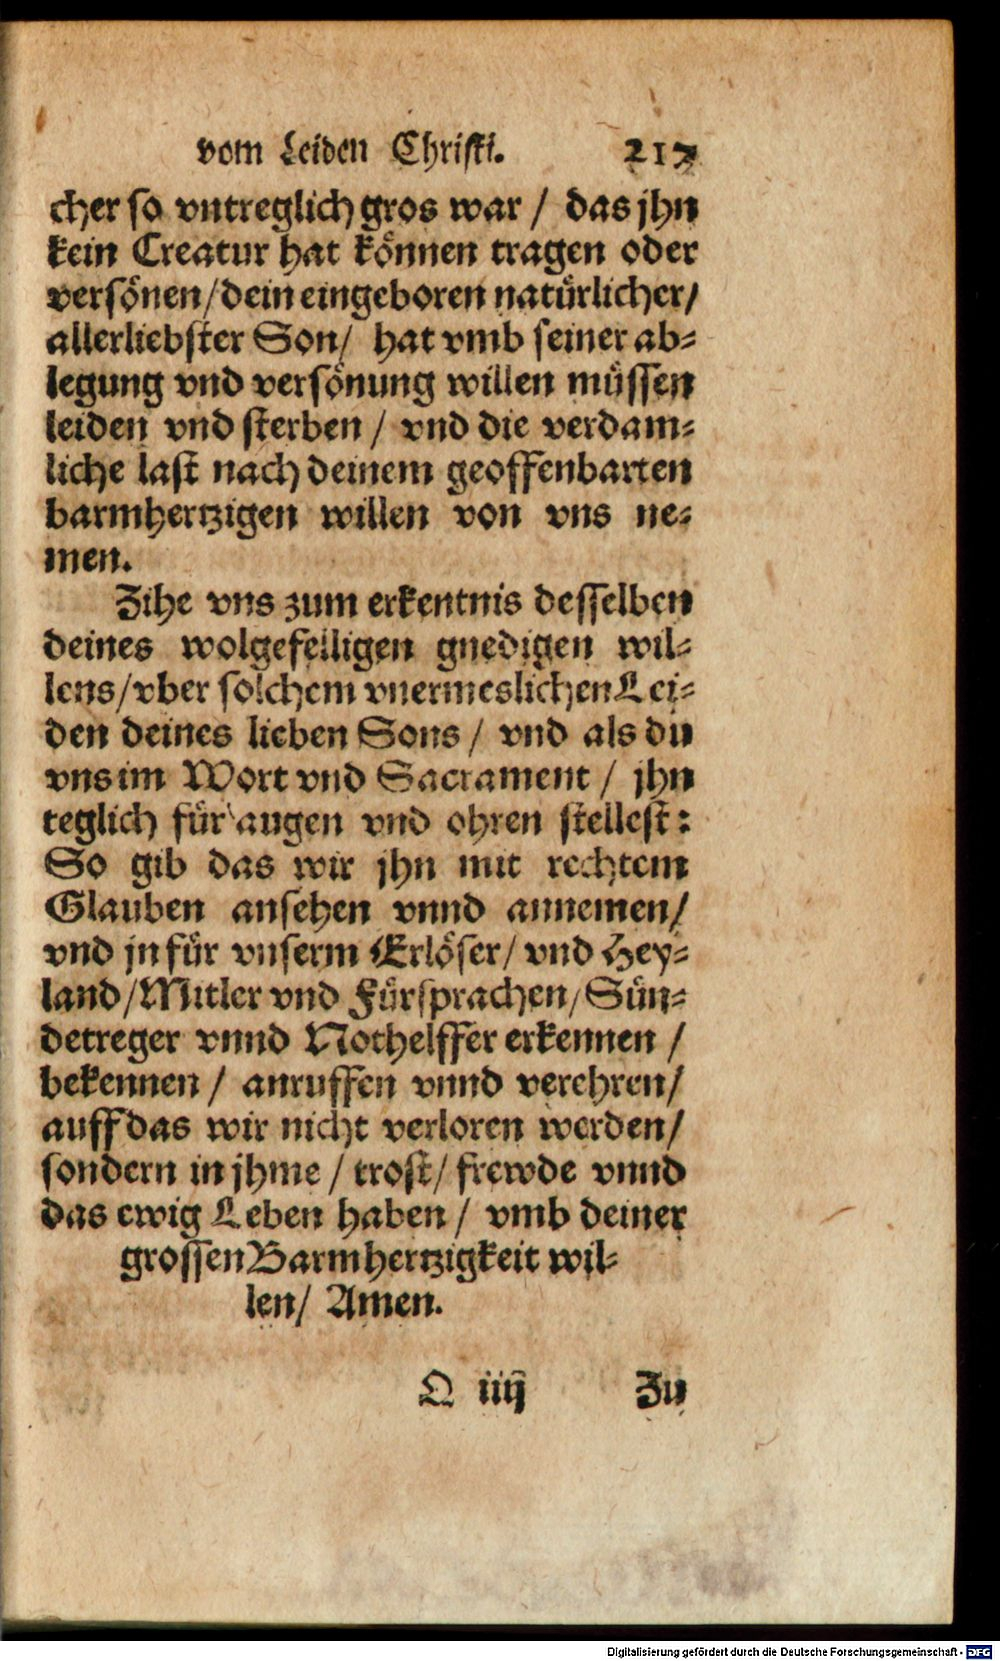 vom Leiden Christi. 217
cher so vntreglich gros war / das jhn
kein Creatur hat können tragen oder
versönen / dein eingeboren natürlicher /
allerliebster Son / hat vmb seiner ab⸗
legung vnd versönung willen müssen
leiden vnd sterben / vnd die verdam⸗
liche last nach deinem geoffenbarten
barmhertzigen willen von vns ne⸗
men.
Zihe vns zum erkentnis desselben
deines wolgefelligen gnedigen wil⸗
lens / vber solchem vnermeslichen Lei⸗
den deines lieben Sons / vnd als du
vns im Wort vnd Sacrament / jhn
teglich für augen vnd ohren stellest:
So gib das wir jhn mit rechtem
Glauben ansehen vnnd annemen /
vnd jn für vnserm Erlöser / vnd Hey⸗
land / Mitler vnd Fürsprachen / Sün⸗
detreger vnnd Nothelffer erkennen /
bekennen / anruffen vnnd verehren /
auff das wir nicht verloren werden /
sondern in jhme / trost / frewde vnnd
das ewig Leben haben / vmb deiner
grossen Barmhertzigkeit wil⸗
len / Amen.
Q iiij Zu
Digitalisierung gefördert durch die Deutsche Forschungsgemeinschaft - DFG